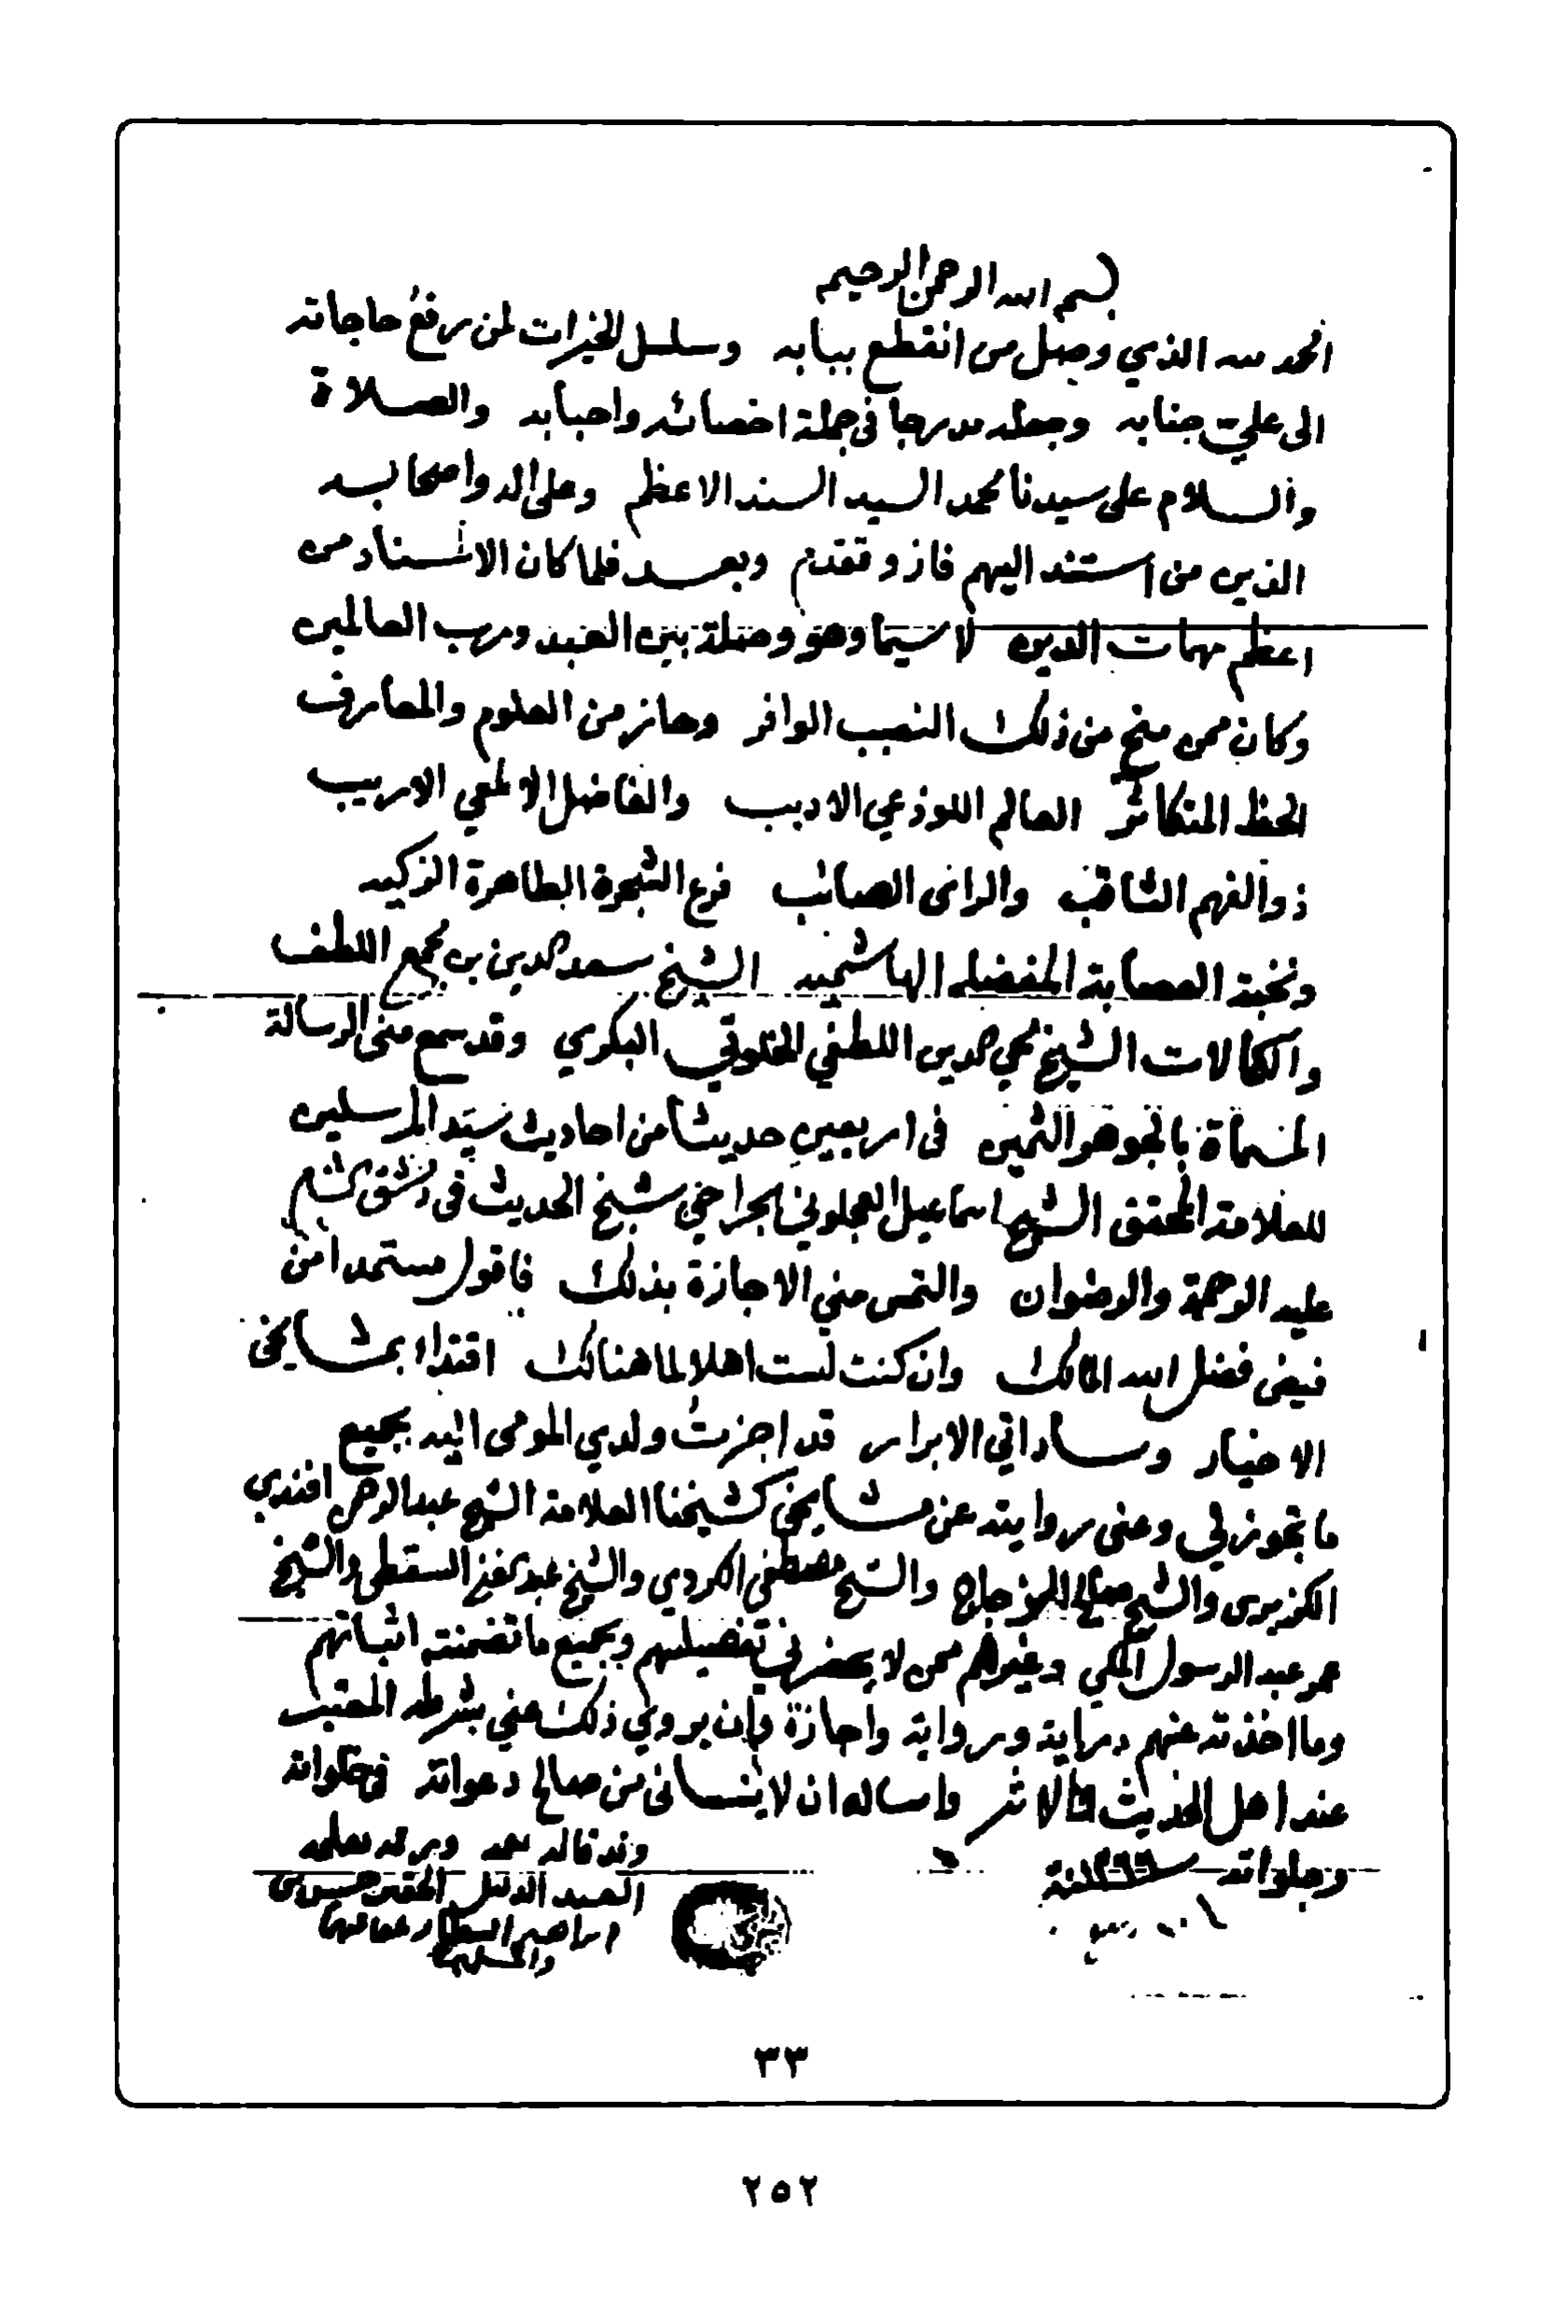 بسم الله الرحمن الرحيم
الحمد لله الذي وصل من انقطع ببابه وسلسل الخيرات لمن رفع حاجاته
الى علي جنابه وجعله مدرجا في جملة اخصائه واحبابه والصلاة
والسلام على سيدنا محمد السيد السند الاعظم وعلى اله واصحابه
الذين من استند اليهم فاز وتقدم وبعد فلما كان الاسناد من
اعظم مهمات الدين لا سيما وهو وصلة بين العبد ورب العالمين
وكان ممن منح من ذلك النصيب الوافر وحاز من العلوم والمعارف
الحظ المتكاثر العالم اللوذعي الاديب والفاضل الالمعي الاريب
ذو الفهم الثاقب والرائ الصائب فرع الشجرة الطاهرة الزكيه
ونخبة العصابة المفضله الهاشميه الشيخ سعد الدين بن مجمع اللطف
والكمالات الشيخ محي الدين اللطفي الخلوتي البكري وقد سمع مني الرسالة
المسماة بالجوهر الثمين في اربعين حديثا من احاديث سيد المرسلين
للعلامة المحقق الشيخ اسماعيل العجلوني الجراحي شيخ الحديث في دمشق الشام
عليه الرحمة والرضوان والتمس مني الاجازة بذلك فاقول مستمدا من
فيض فضل الله المالك وان كنت لست اهلا لما هنالك اقتداء بمشايخي
الاخيار وساداتي الابرار قد اجزت ولدي المومى اليه بجميع
ما تجوز لي وعنى روايته عن مشايخي كشيخنا العلامة الشيخ عبد الرحمن افندي
الكزبرى والشيخ صالح الزجاج والشيخ مصطفى الكردي والشيخ السقطي والشيخ
عمر عبد الرسول المكي وغيرهم ممن لا يحضرني تفصيلهم وبجميع ما تضمنته اثباتهم
وما اخذته عنهم دراية ورواية واجازة وان يروي ذلك عني بشرطه المعتبر
عند اهل الحديث والاثر واساله ان لا ينساني من صالح دعواته في خلواته
وجلواته
وقد قاله بفمه ورقمه بقلمه
العبد الذليل الحقير حسن بن
ابراهيم البيطار
٣٣
٢٥٢